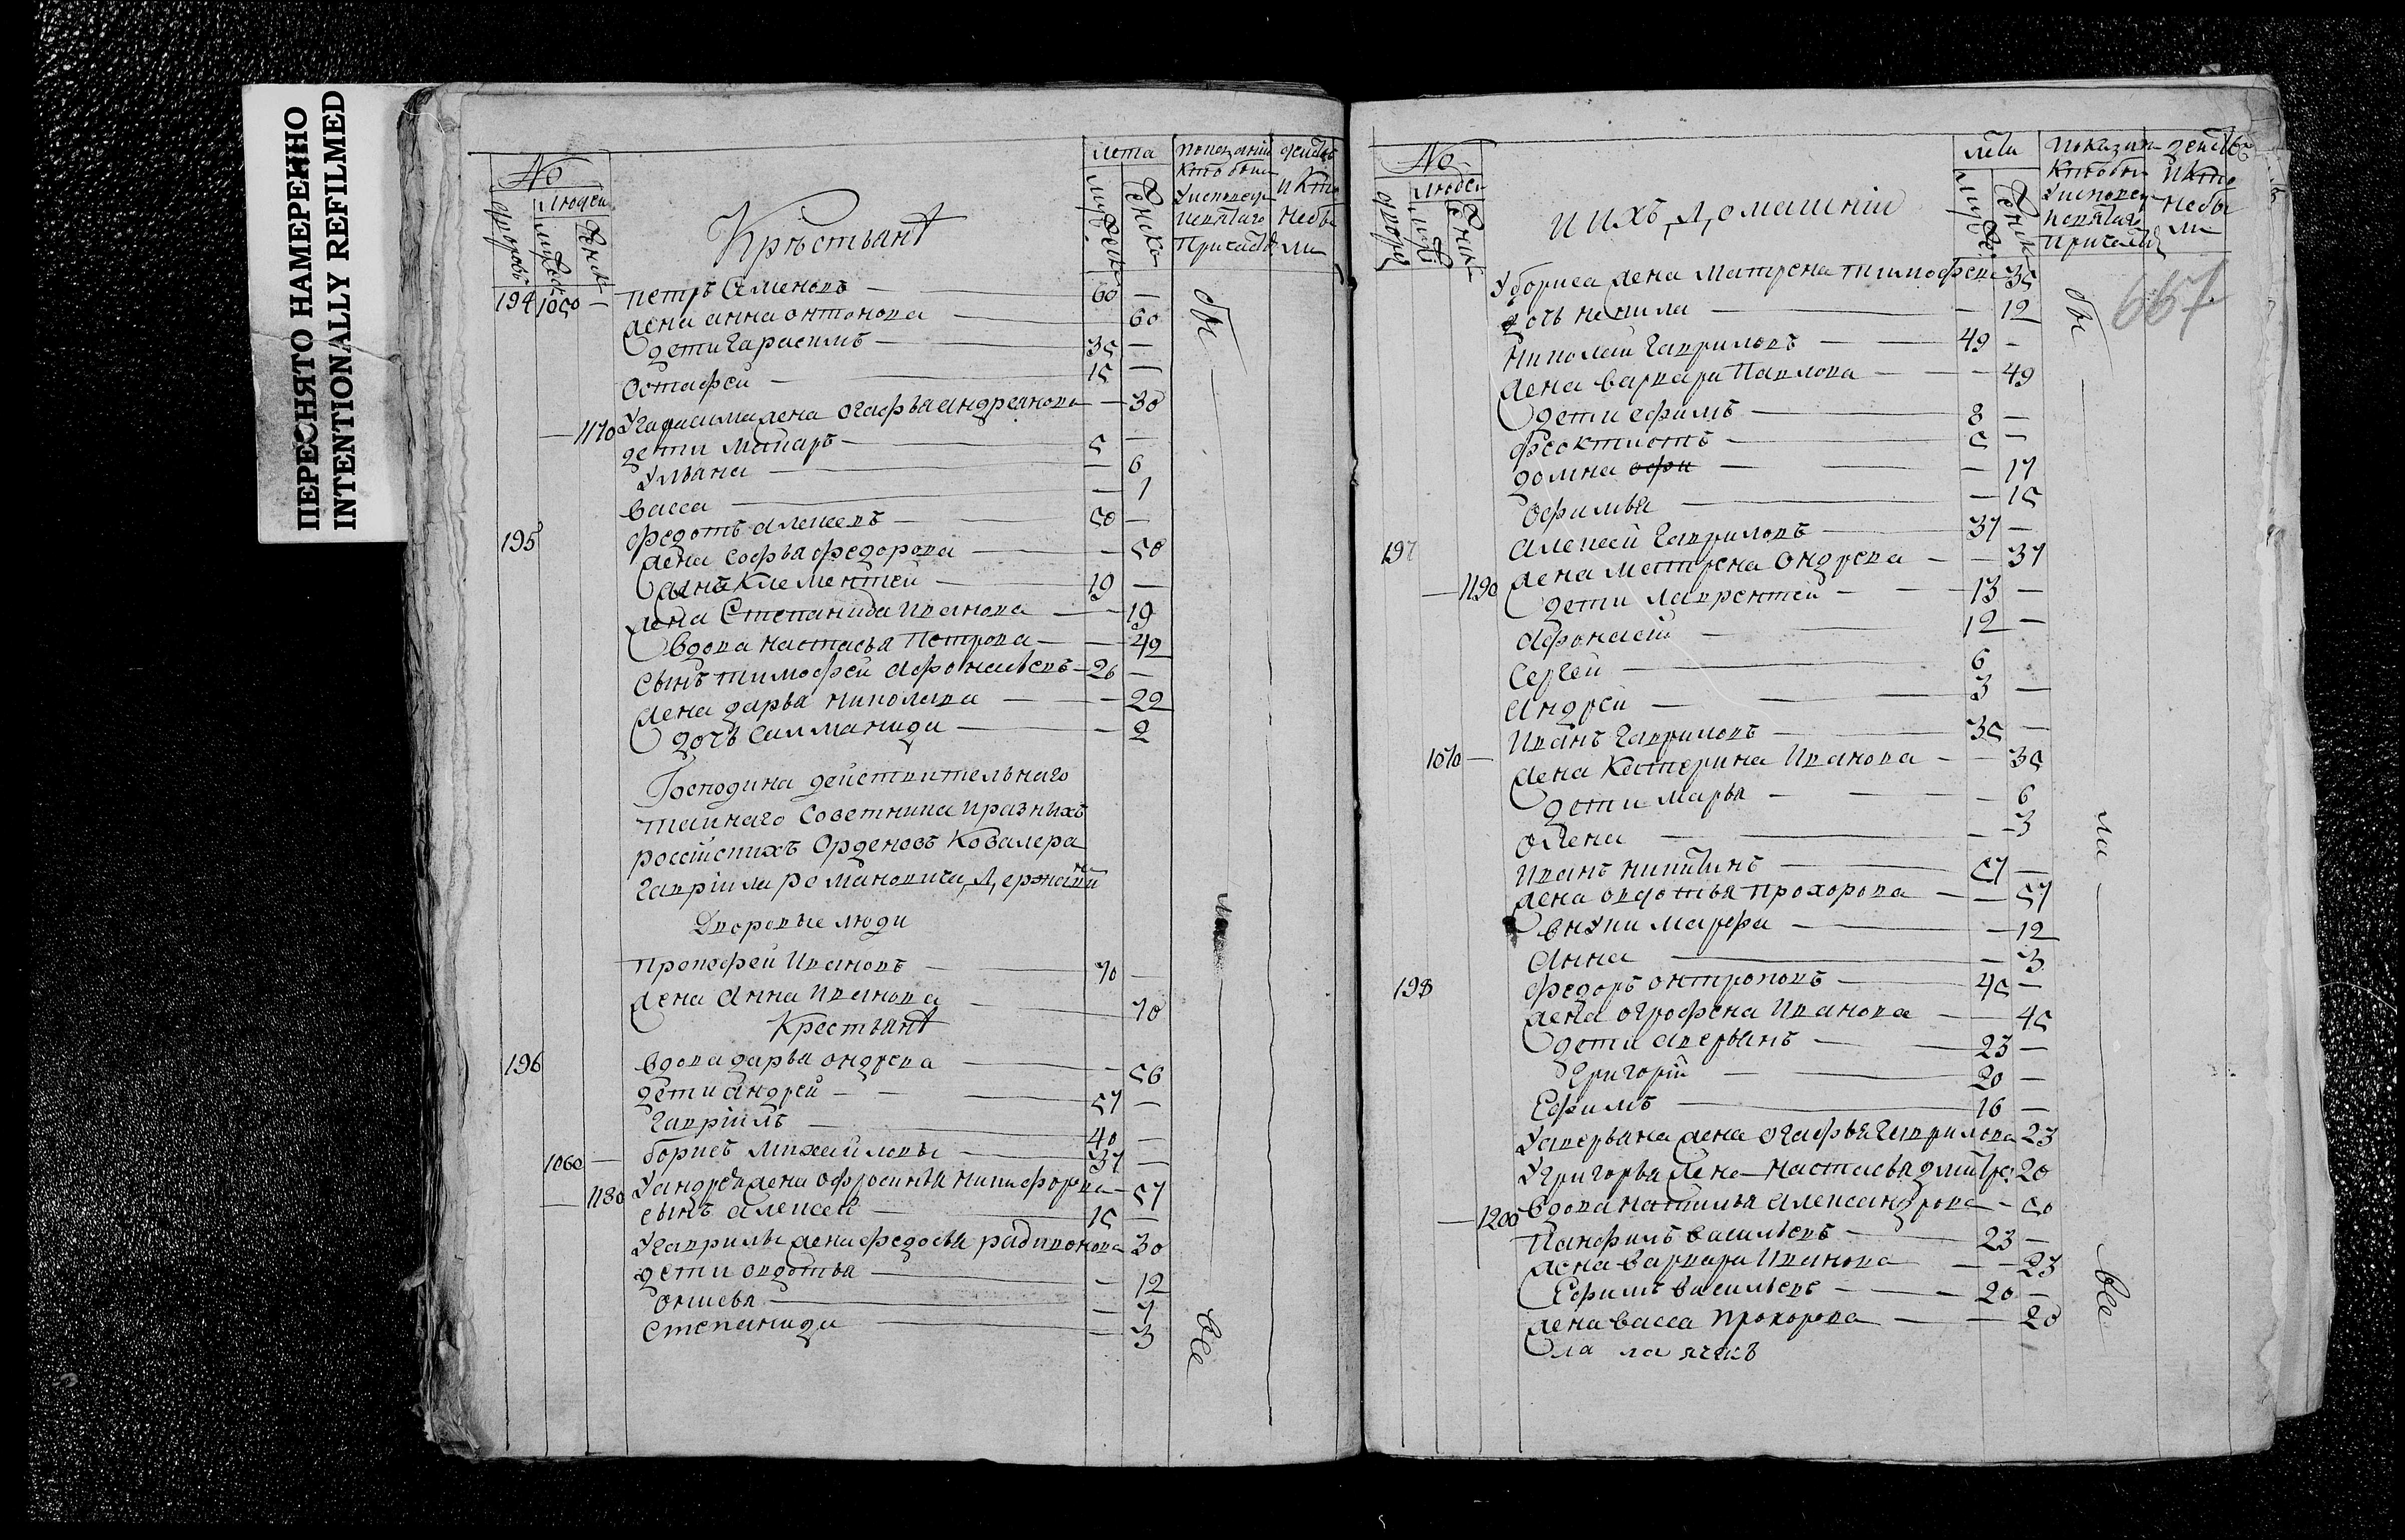 ПЕРЕСНЯТО НАМЕРЕННО
INTENTIONALLY REFILMED
№
Людей
дворовъ
мужеск
женск
Крѣстьянѣ
лета
мужеск
женска
показаніи действ
кто были
у исповеди и кто
и святаго небы
причастія ли
194 1050 — петръ Семеновъ — 60 —
жена анна онтонова — 60
дети гарасимъ — 35 —
Остафей — 15 —
— 1170 У гарасима жена огафья андреянова — 30
дети Макаръ — 5 —
Ульяна — 6
васса — 1
195 федотъ алексеевъ — 50 —
жена софья федорова — 50
сынъ Клементей — 19 —
жена Степанида иванова — 19
вдова настасья Петрова — 49
сынъ тимофей афонасьевъ — 26 —
жена дарья николаева — 22
дочь Саламанида — 2
Господина действительнаго
тайнаго Советника и разныхъ
россійскихъ Орденовъ Ковалера
гавріила романовича Державина
Дворовые люди
прокофей Ивановъ — 70 —
жена Анна Иванова — 70
Крестьянѣ
196 вдова дарья ондреева — 56
дети андрей — 57 —
гавріилъ — 40 —
1060 — борисъ михайловы — 37 —
— 1180 У андрея жена офросинья никифорова — 57
сынъ алексей — 15 —
У гаврилы жена федосья радивонова 30
дети овдотья — 12
Оксинья — 7
степанида — 3
бы
ли
все
№
людей
дворов
муж
женск
и ихъ Домашніи
лета
мужеск
женск
показани действ
кто были
у исповеди и кто
и святаго небы
причастія ли
667
У бориса жена матрена тимофеева 35
дочь ненила — 12
николай гавриловъ — 49 —
жена варвара Павлова — 49
дети ефимъ — 8 —
феоктистъ — 5 —
домна офи — 17
Офимья — 15
197 алексей гавриловъ — 37 —
жена матрена ондреева — 37
— 1190 дети лаврентей — 13 —
Афонасей — 12 —
Сергей — 6
андрей — 3 —
Иванъ гавриловъ — 35 —
1070 — жена Катерина Иванова — 35
дети марья — 6
олена — 3
Иванъ никитинъ — 57 —
жена овдотья прохорова — 57
внуки марфа — 12
Анна — 3
198 федоръ онтроповъ — 45 —
жена огрофена Иванова — 45
дети аверьянъ — 23 —
Григорій — 20 —
Ефимъ — 16 —
У аверьяна жена огафья гаврилова 23
У григорья жена настасья дмитре: 20
— 1200 вдова наталья александрова — 50
Панфилъ васильевъ — 23 —
жена варвара Иванова — 23
Ефимъ васильевъ — 20 —
жена васса прохорова — 20
бы
ли
все